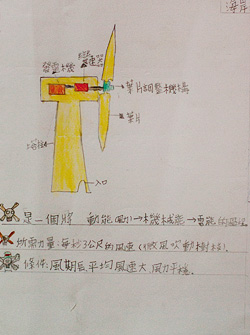 海岸
發電機
變速器
葉片調整機構
葉片
塔
入口
是一個將 動能(風)→機械能→電能的
納電力量:每秒3公尺的風速(微風吹動樹枝)
條件:風期長平均風速大,風力平穩。